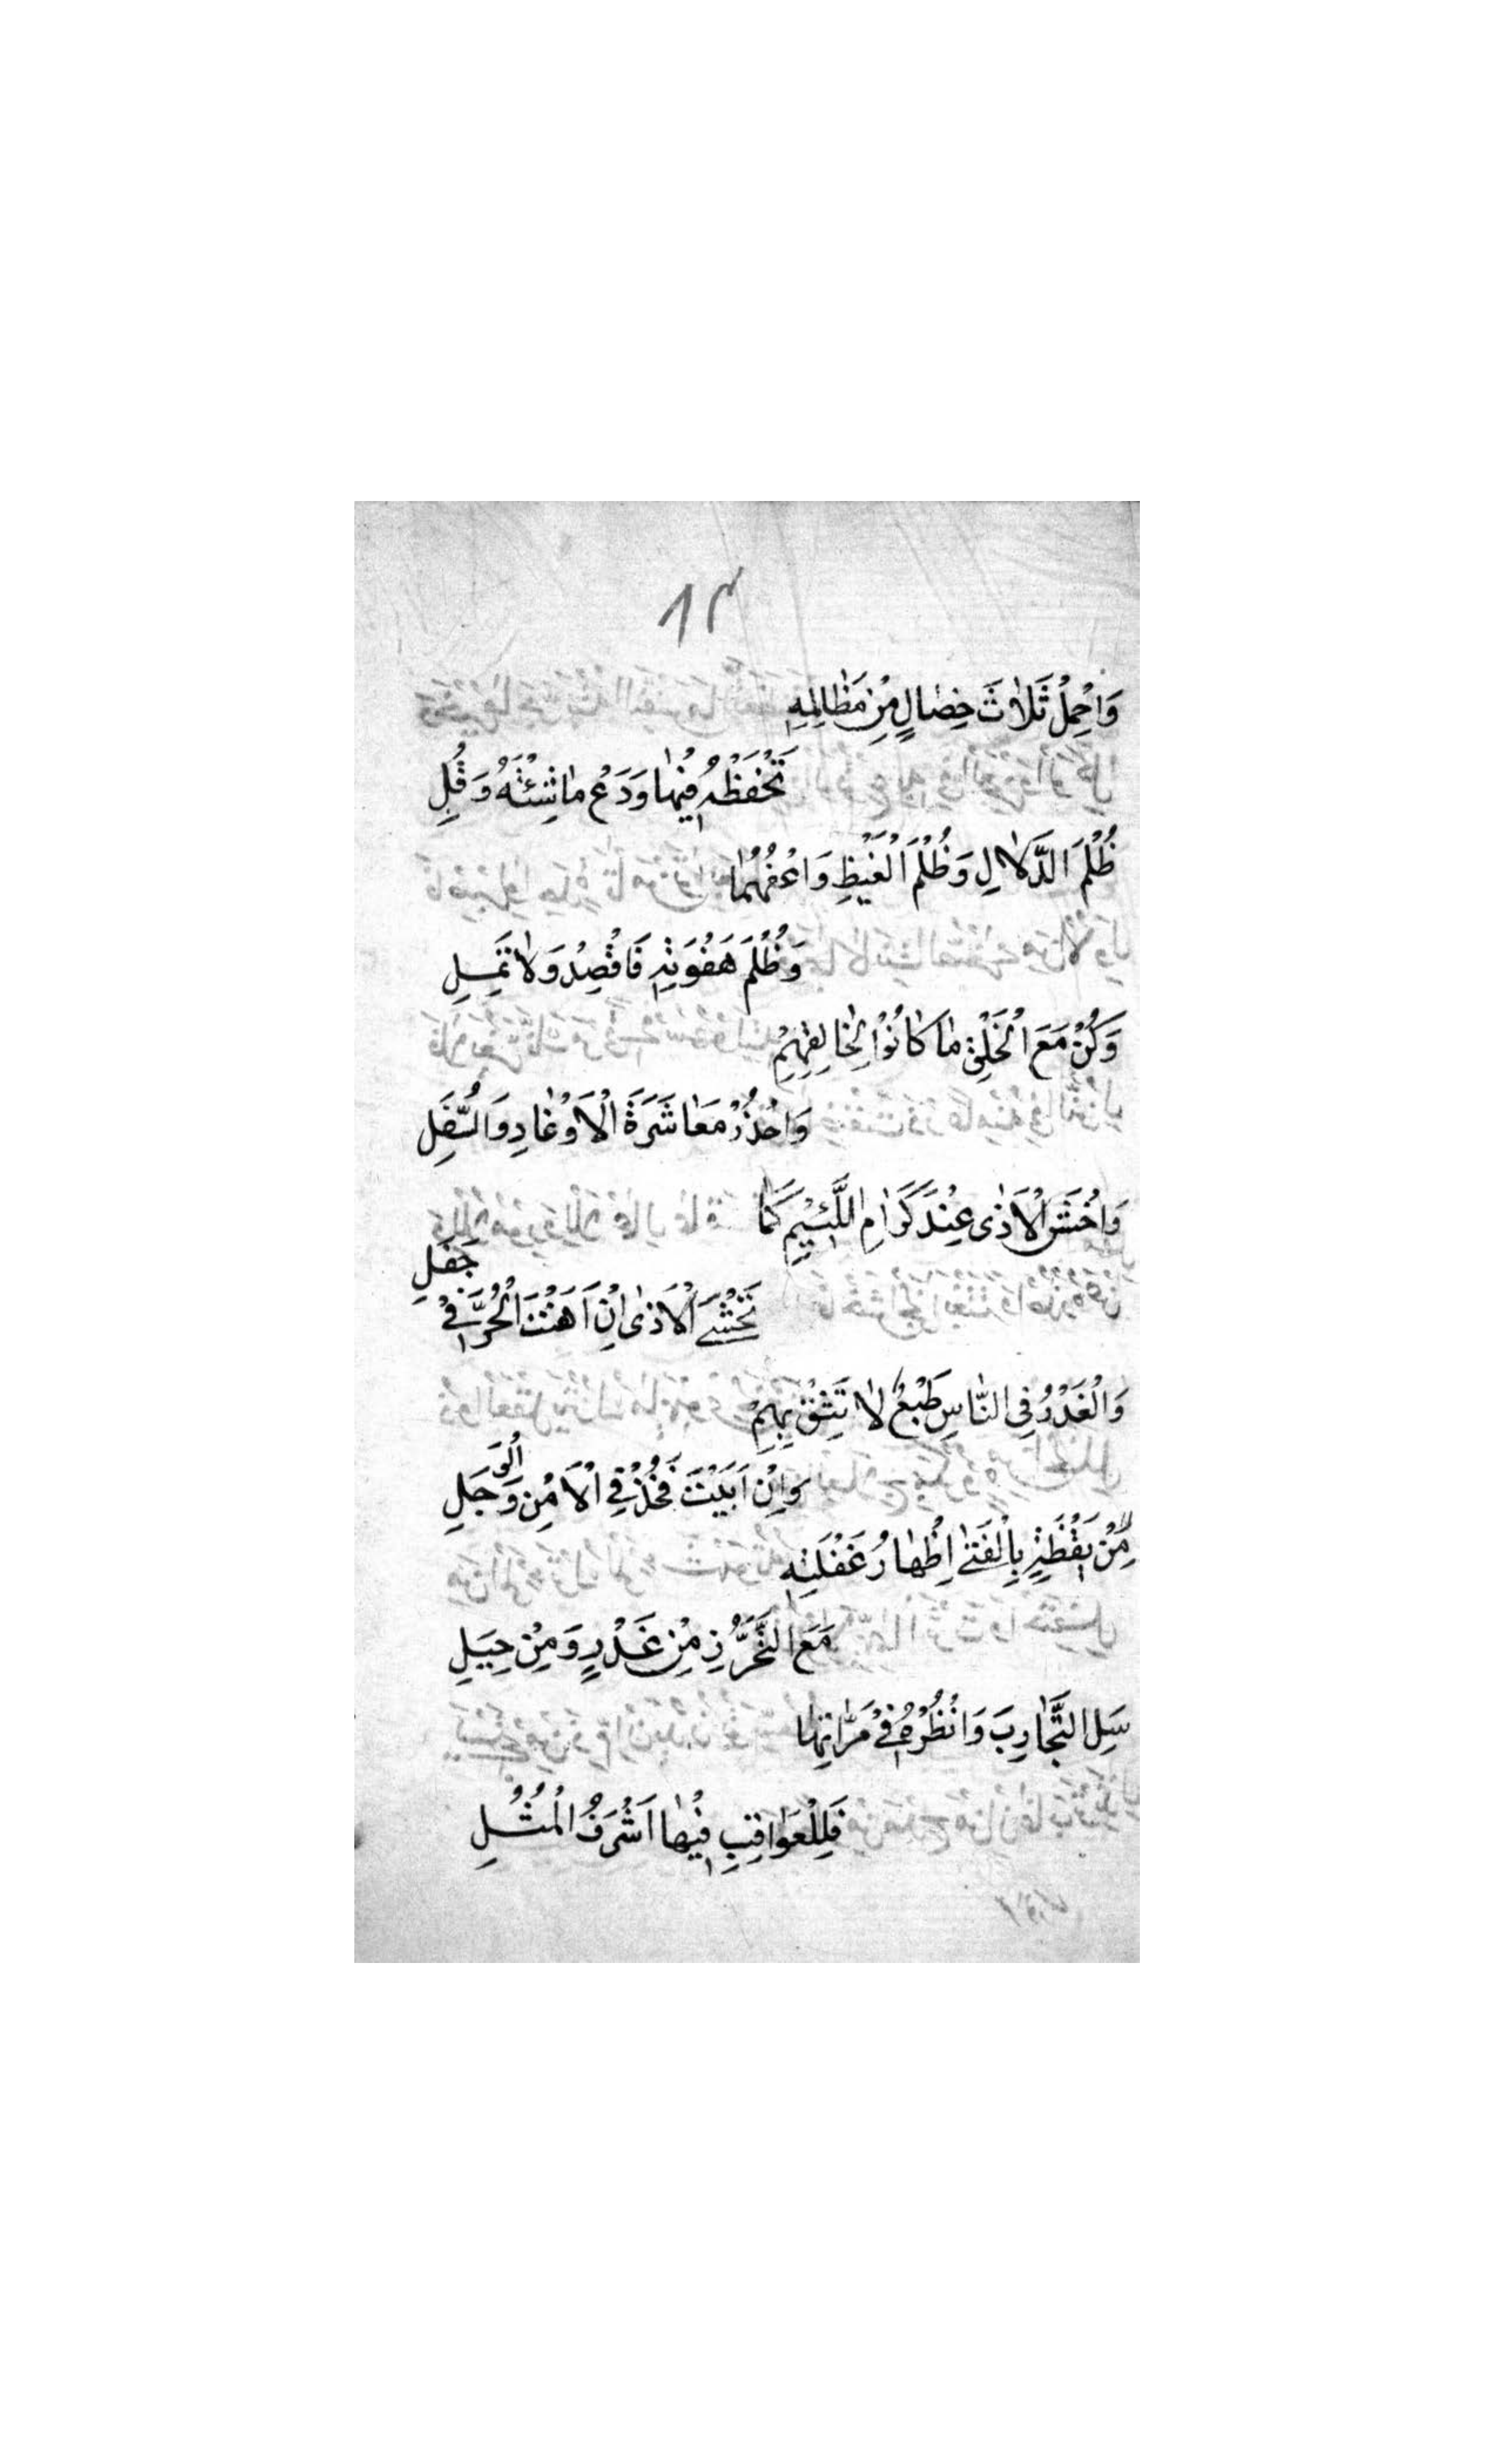 ١٣
وَاحْمِلْ ثَلَاثَ خِصَالٍ مِنْ مَظَالِمِهِ
تَحْفَظْهُ فِيْهَا وَدَعْ مَا شِئْتَهُ وَقُلِ
ظُلْمَ الدَّلَالِ وَظُلْمَ الْغَيْظِ وَاعْفُهُمَا
وَظُلْمَ هَفْوَتِهِ فَاقْصِدْ وَلَا تَمِلِ
وَكُنْ مَعَ الْخَلْقِ مَا كَانُوْا لِخَالِقِهِمْ
وَاحْذَرْ مَعَاشَرَةَ الْاَوْغَادِ وَالسُّفَلِ
وَاخْشَ الْاَذٰى عِنْدَ كَرَامِ اللَّئِيْمِ كَمَا
تَخْشَى الْاَذٰى اِنْ اَهَنْتَ الْحُرَّ فِيْ جَفَلِ
وَالْغَدْرُ فِى النَّاسِ طَبْعٌ لَا تَثِقْ بِهِمِ
وَاِنْ اَبَيْتَ فَخُذْ فِى الْاَمْنِ وَجَلِ
الْوَ
مِنْ يَقْظَةٍ بِالْفَتٰى اِظْهَارُ غَفْلَتِهِ
مَعَ التَّحَرُّزِ مِنْ غَدْرٍ وَمِنْ حِيَلِ
سَلِ التَّجَارِبَ وَانْظُرْهُ فِيْ مَرَّاتِهَا
فَلِلْعَوَاقِبِ فِيْهَا اَشْرَفُ الْمُثُلِ